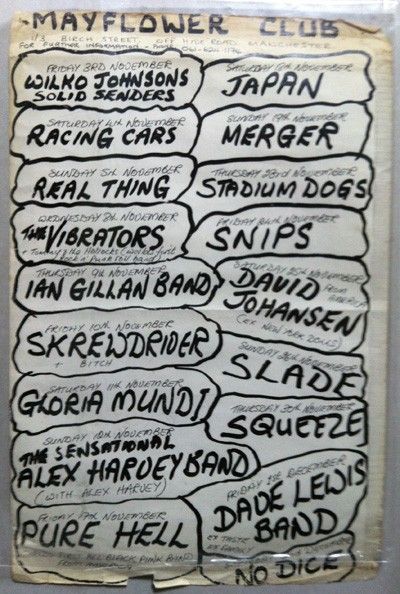 MAYFLOWER CLUB
1/3 BIRCH STREET, OFF HYDE ROAD, MANCHESTER
FOR FURTHER INFORMATION - PHONE 061-224 1176
FRIDAY 3RD NOVEMBER
WILKO JOHNSONS
SOLID SENDERS
SATURDAY 4th NOVEMBER
RACING CARS
SUNDAY 5th NOVEMBER
REAL THING
WEDNESDAY 8th NOVEMBER
THE VIBRATORS
+ Tommy & the
rock n' Punk roll band
THURSDAY 9th NOVEMBER
IAN GILLAN BAND
FRIDAY 10th NOVEMBER
SKREWDRIDER
+ BITCH
SATURDAY 11th NOVEMBER
GLORIA MUNDI
SUNDAY 12th NOVEMBER
THE SENSATIONAL
ALEX HARVEY BAND
(WITH ALEX HARVEY)
FRIDAY 17th NOVEMBER
PURE HELL
FIRST ALL BLACK PUNK BAND
FROM
SATURDAY NOVEMBER
JAPAN
SUNDAY 19th NOVEMBER
MERGER
THURSDAY 23rd NOVEMBER
STADIUM DOGS
FRIDAY 24th NOVEMBER
SNIPS
SATURDAY 25th NOVEMBER
DAVID
FROM AMERICA
JOHANSEN
(EX NEW YORK DOLLS)
SUNDAY 26th NOVEMBER
SLADE
THURSDAY 30th NOVEMBER
SQUEEZE
FRIDAY 1st DECEMBER
DAVE LEWIS
BAND
EX TASTE
EX
DECEMBER
NO DICE